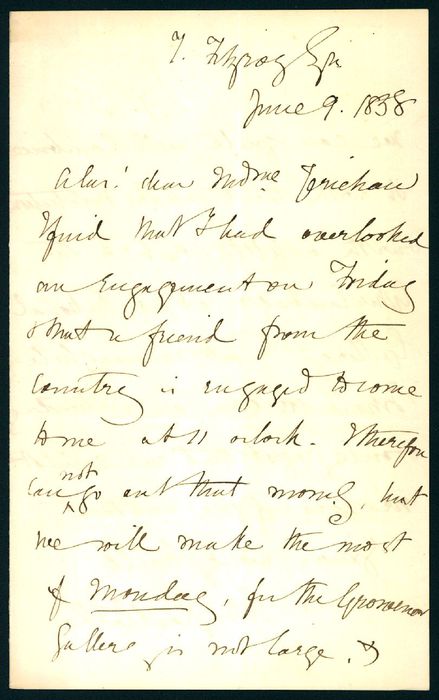 7. Fitzroy Sqre
June 9. 1858
Alas! dear Mdme Jerichau
I find that I had overlooked
an Engagement on Friday
& that a friend from the
Country is engaged to come
to me at 11 oclock. I therefore
can not go out that morng, but
we will make the most
of Monday, for the Grosvenor
Gallery is not large. &